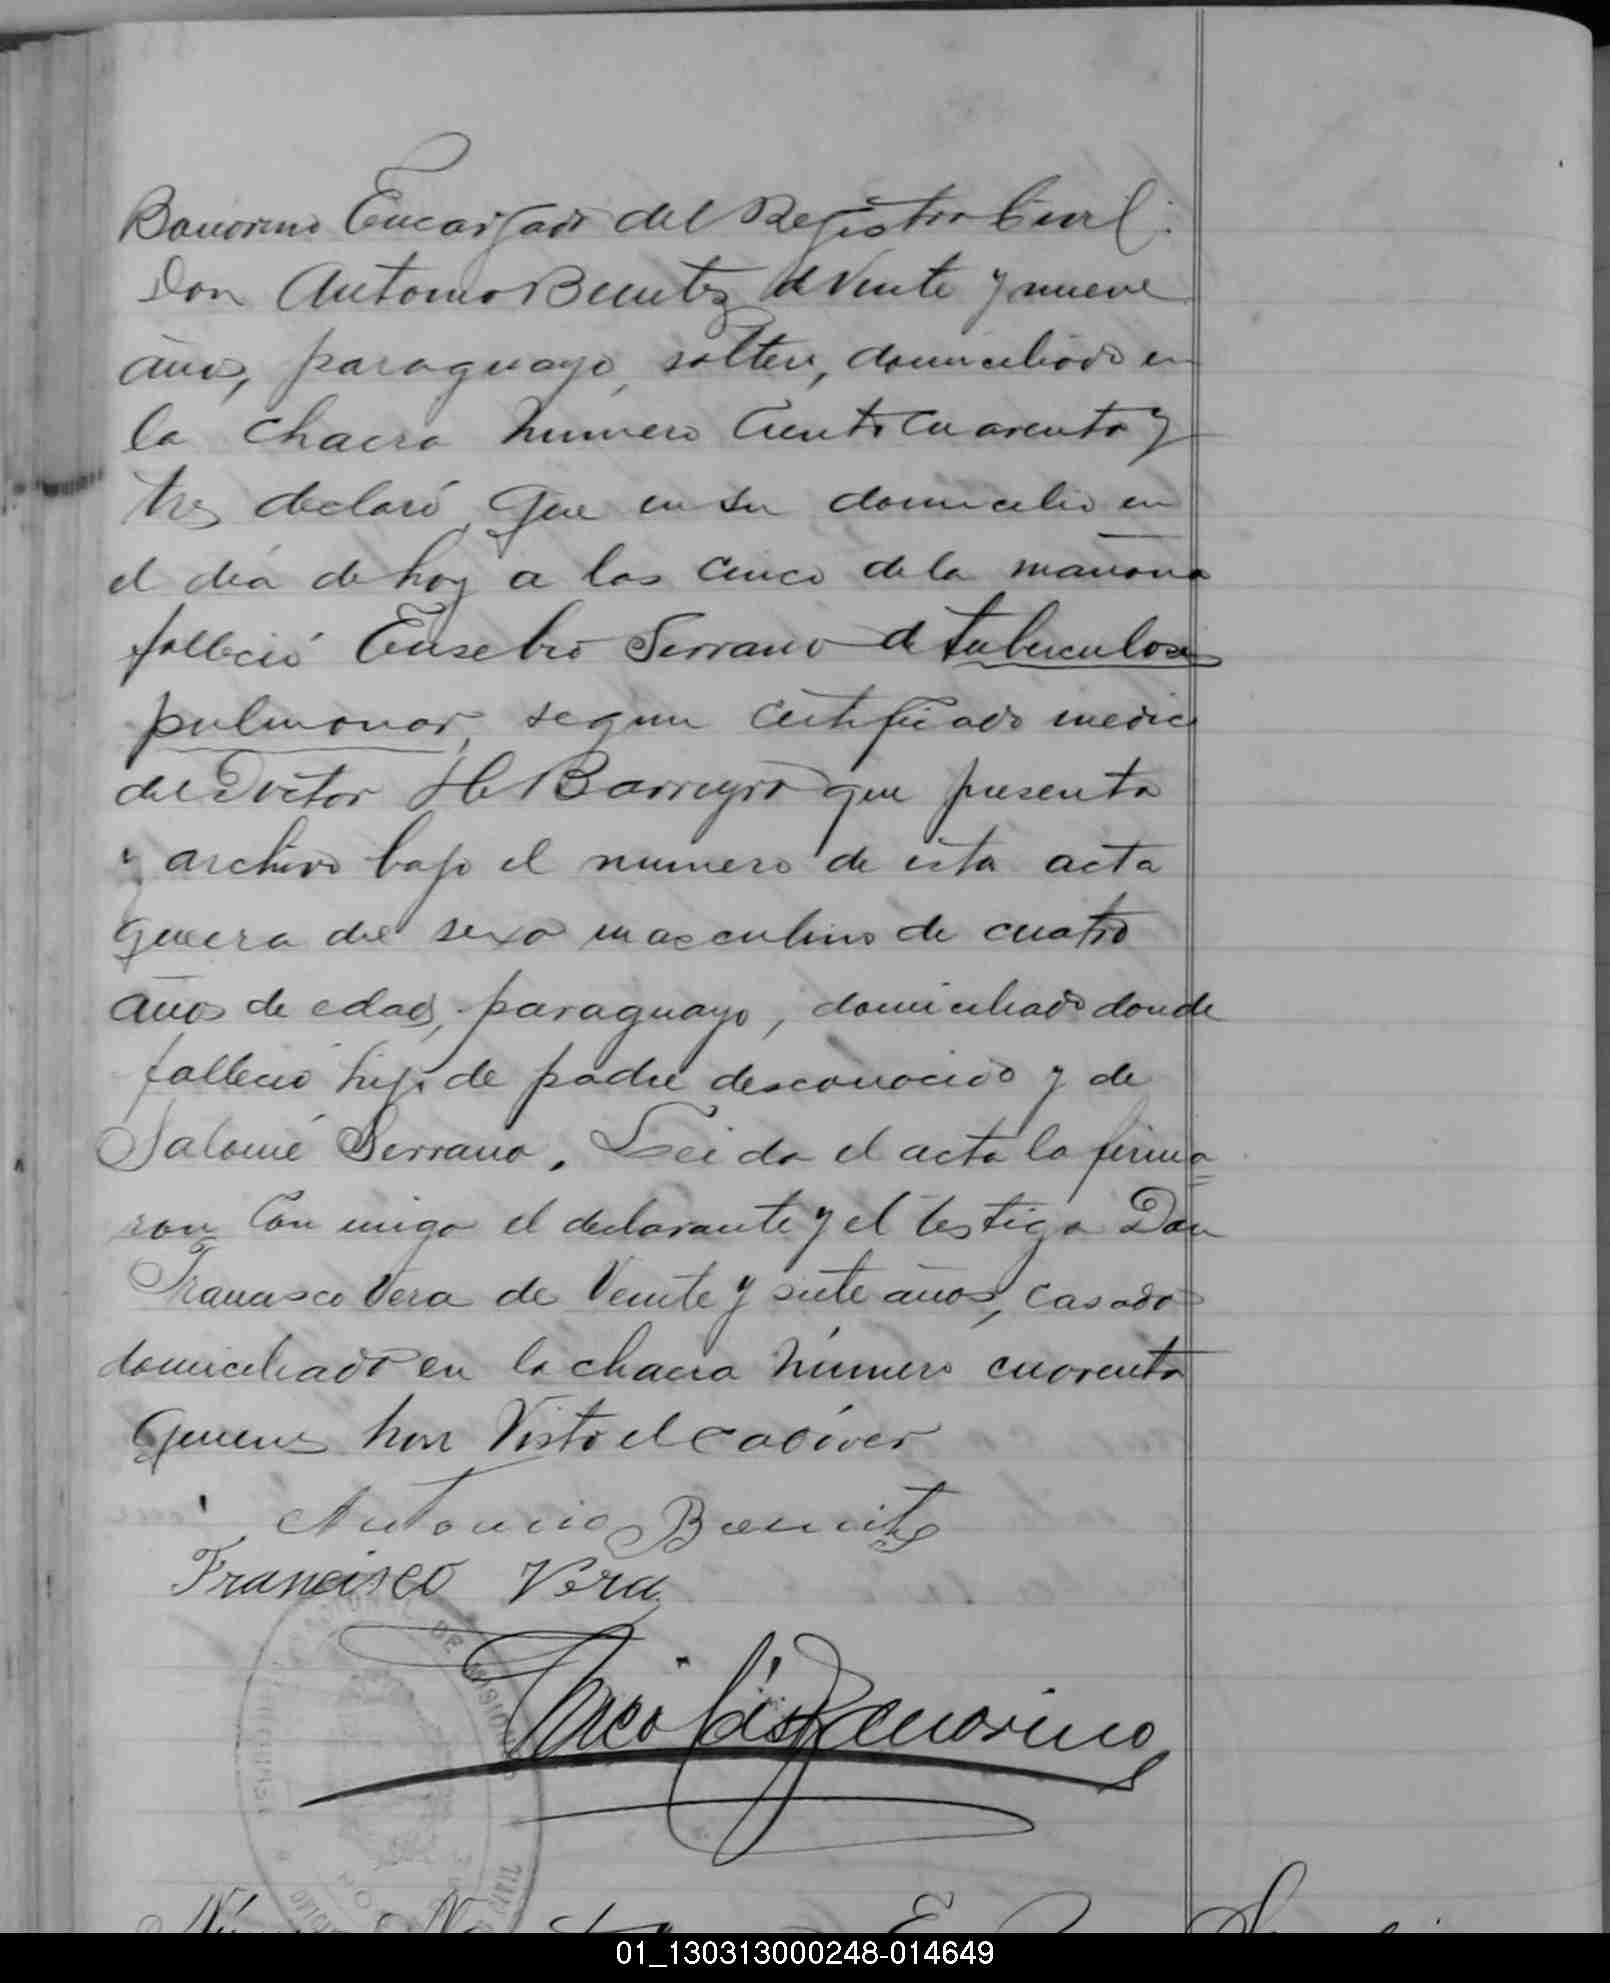 Bonorino Encargado del Registro Civil:
Don Antonio Benitez de veinte y nueve
años, paraguayo, soltero, domiciliado en
la chacra número ciento cuarenta y
tres declaró, que en su domicilio en
el día de hoy a las cinco de la mañana
falleció Eusebio Serrano de tuberculosis
pulmonar, segun certificado medico
del Doctor H Barreyro que presenta
y archivo bajo el numero de esta acta
que era del sexo masculino de cuatro
años de edad, paraguayo, domiciliado donde
falleció hijo de padre desconocido y de
Salomé Serrano. Leida el acta la firma=
ron con migo el declarante y el testigo Don
Francisco Vera de veinte y siete años, casado
domiciliado en la chacra número cuarenta
quienes han visto el cadáver
Antonio Benitez
Francisco Vera
DE MISIONES
01_130313000248-014649